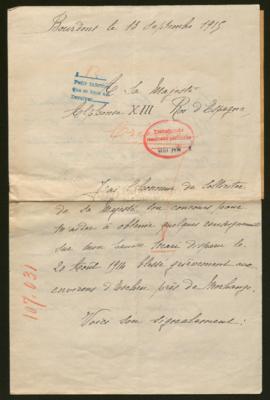 Bourdons le 13 Septembre 1915
A Sa Majesté
Alphonse XIII Roi d'Espagne
J'ai l'honneur de solliciter
de Sa Majesté son concours pour
m'aider à obtenir quelques renseignements
sur mon
disparu le
20 Août 1914 blessé grièvement aux
environs d' près de Morhange.
Voici son signalement:
107.031